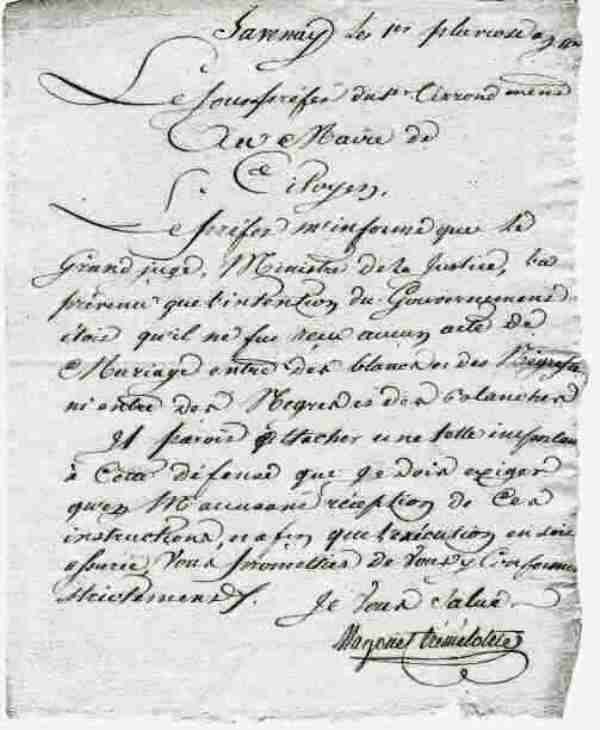 Savenay les 1er pluviose an
Le souspréfet du 1er arrondment
Au Maire de
Citoyen,
Le préfet m'informe que le
Grand juge, Ministre de la Justice, l'a
prévenu que l'intention du Gouvernement
étoit qu'il ne fut reçu aucun acte de
Mariage entre des blancs et des Négresses
ni entre des Negres et des blanches
Il paroit attacher une telle importance
à cette défense que je dois exiger
qu'en M'accusant réception de Ces
instructions, et afin que l'exécution en soit
assurée, Vous promettiez de Vous y Conformer
strictement. Je Vous Salue